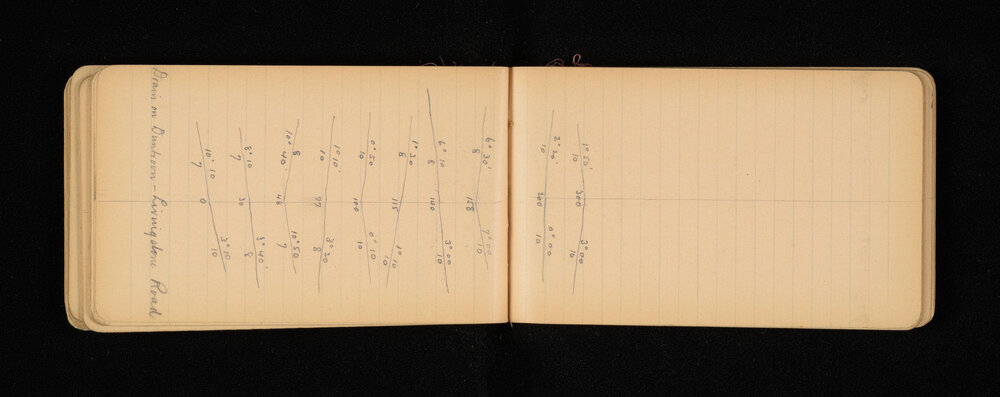 1° 50' 300 3° 00
10 10
2° 20' 200 0° 00
10 10
6° 30' 158 7° 00
8 10
6° 10 140 3° 00
8 10
1° 30 115 1° 10
8 10
0° 50 100 0° 10
10 10
1° 10' 77 3° 20
10 8
8 10° 50
10° 40' 48 7
8° 10 30 3° 40'
7 8
10° 10 0 3° 10
7 10
Drain on Duntroon - Livingstone Road